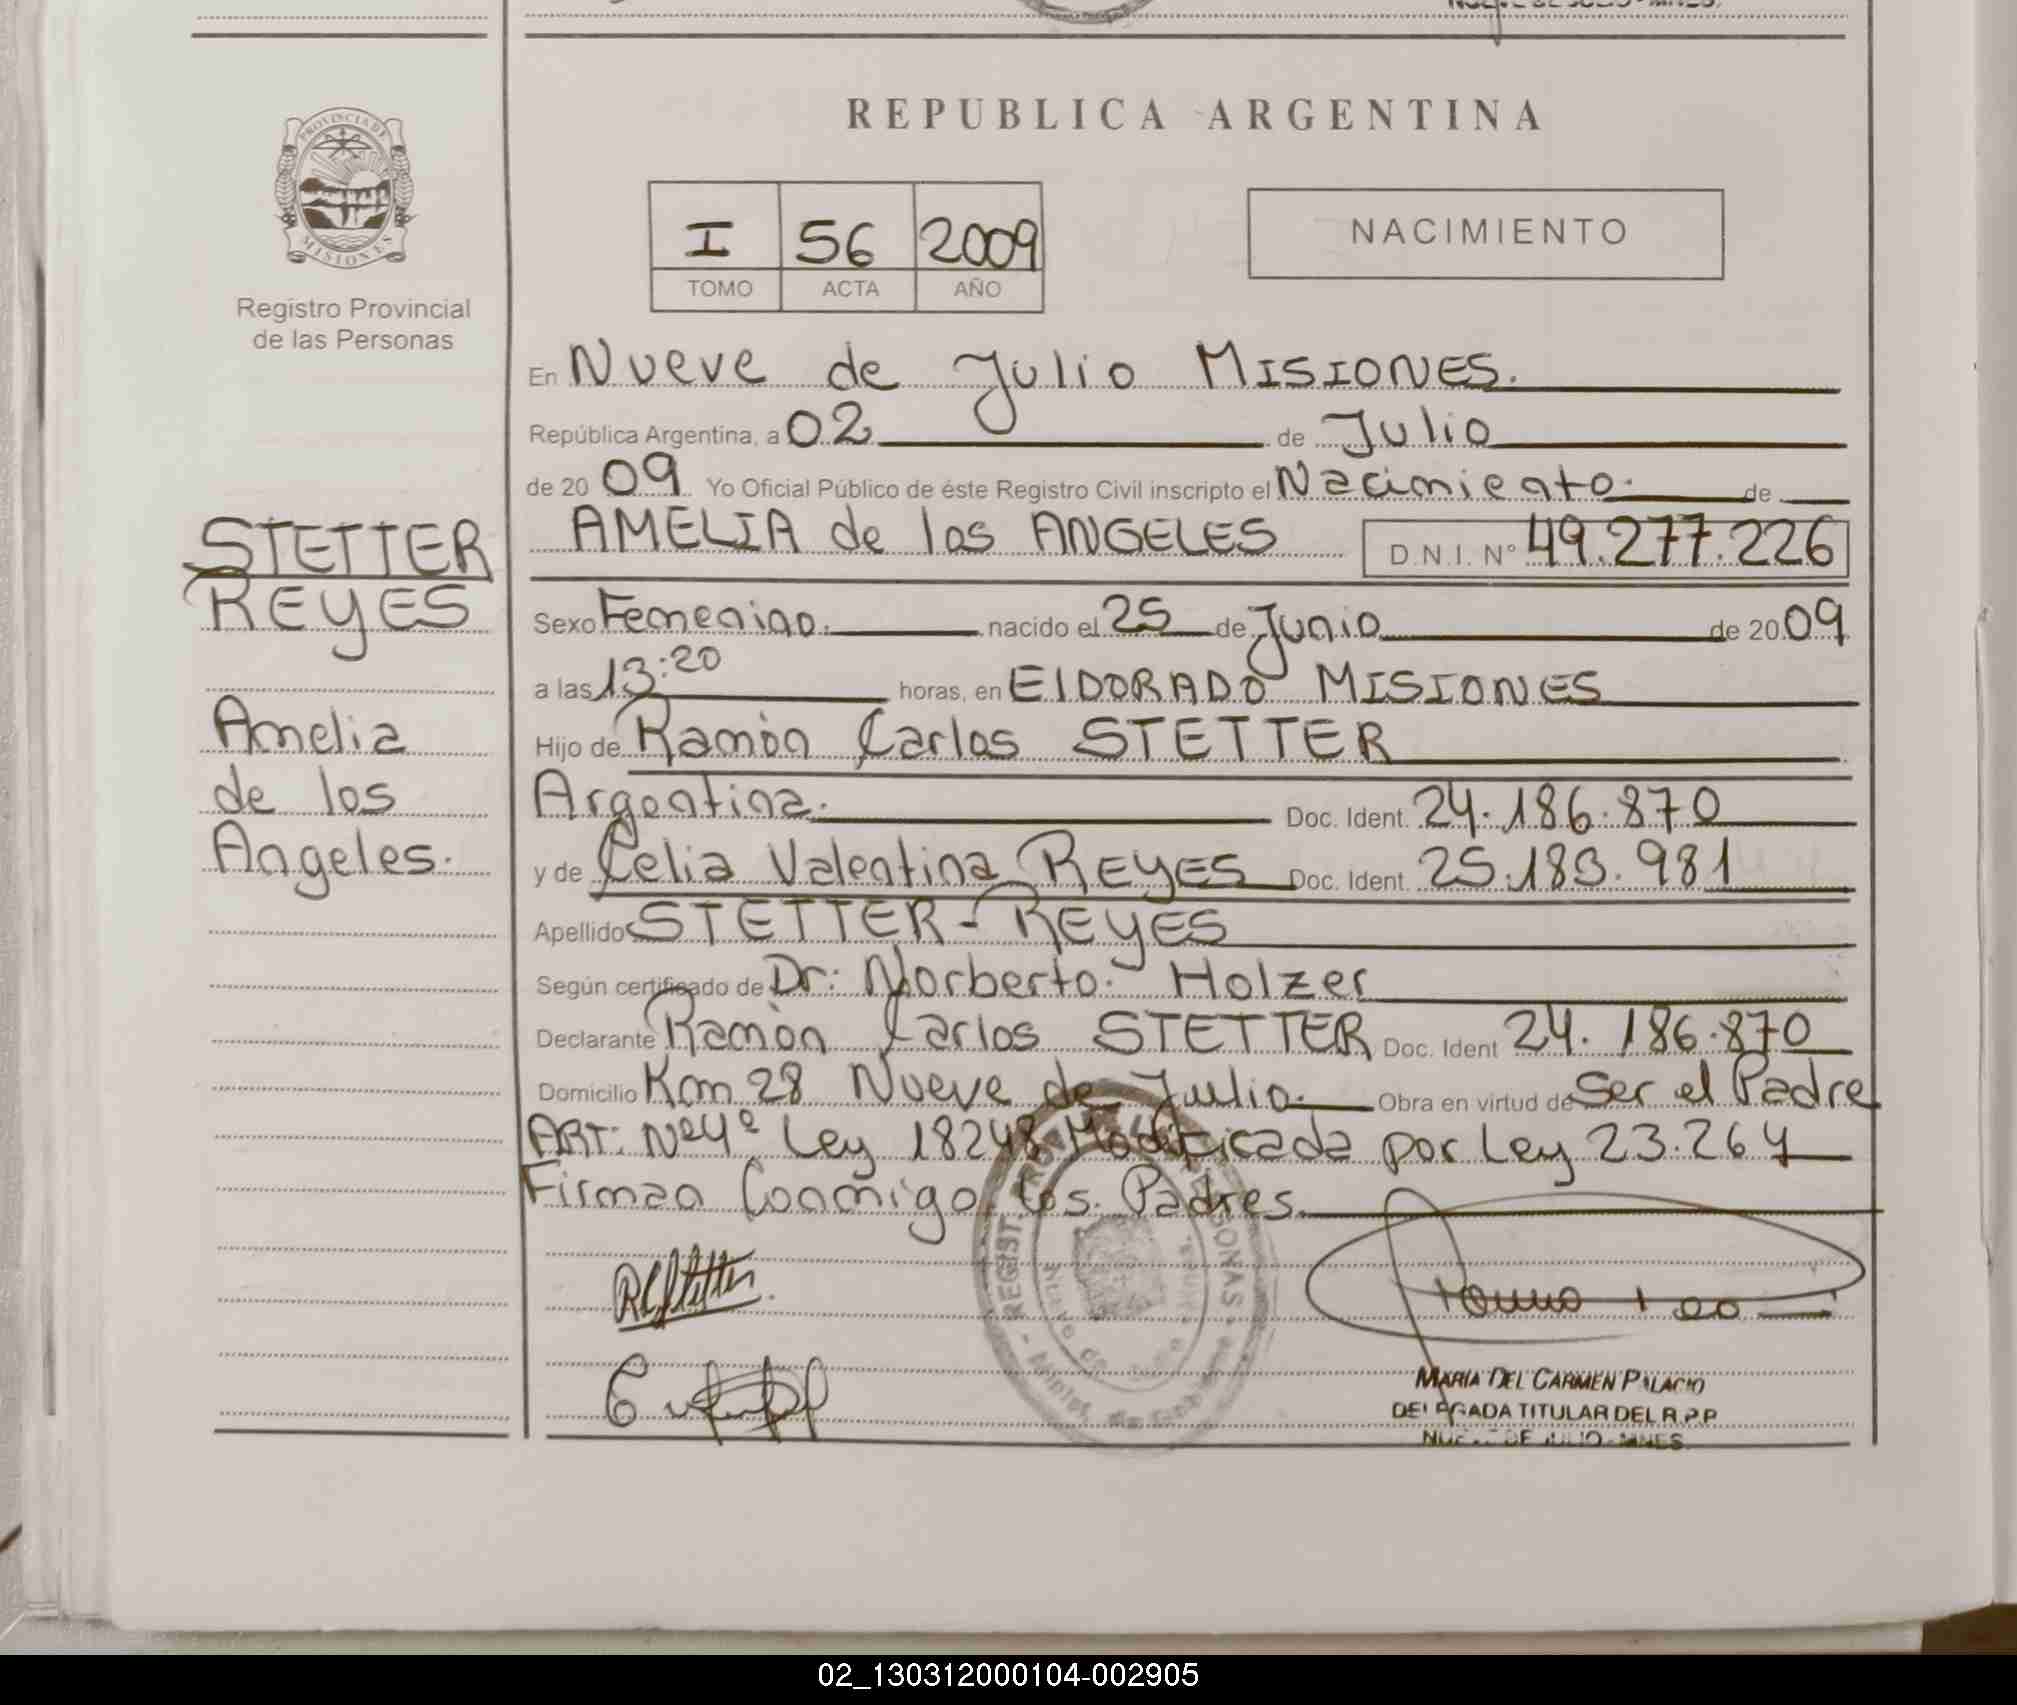 REPUBLICA ARGENTINA
PROVINCIA DE
MISIONES
Registro Provincial
de las Personas
I 56 2009
TOMO ACTA AÑO
NACIMIENTO
En Nueve de Julio MISIONES.
República Argentina, a 02 de Julio
de 20 09 Yo Oficial Público de éste Registro Civil inscripto el Nacimiento. de
AMELIA de los ANGELES D.N.I. Nº 49.277.226
STETTER
REYES
Amelia
de los
Angeles.
Sexo Femenino. nacido el 25 de Junio de 20 09
a las 13:20 horas, en ElDORADO MISIONES
Hijo de Ramòn Carlos STETTER
Argentina. Doc. Ident. 24.186.870
y de Celia Valentina REYES Doc. Ident. 25.183.981
Apellido STETTER-REYES
Según certificado de Dr: Norberto. Holzer
Declarante Ramòn Carlos STETTER Doc. Ident 24.186.870
Domicilio Km 28 Nueve de Julio. Obra en virtud de Ser el Padre
ART: Nº4º Ley 18248 Modificada por Ley 23.264
Firman Conmigo los Padres.
RCStetter.
MARIA DEL CARMEN PALACIO
DELEGADA TITULAR DEL R.P.P
NUEVE DE JULIO - MNES.
02_130312000104-002905